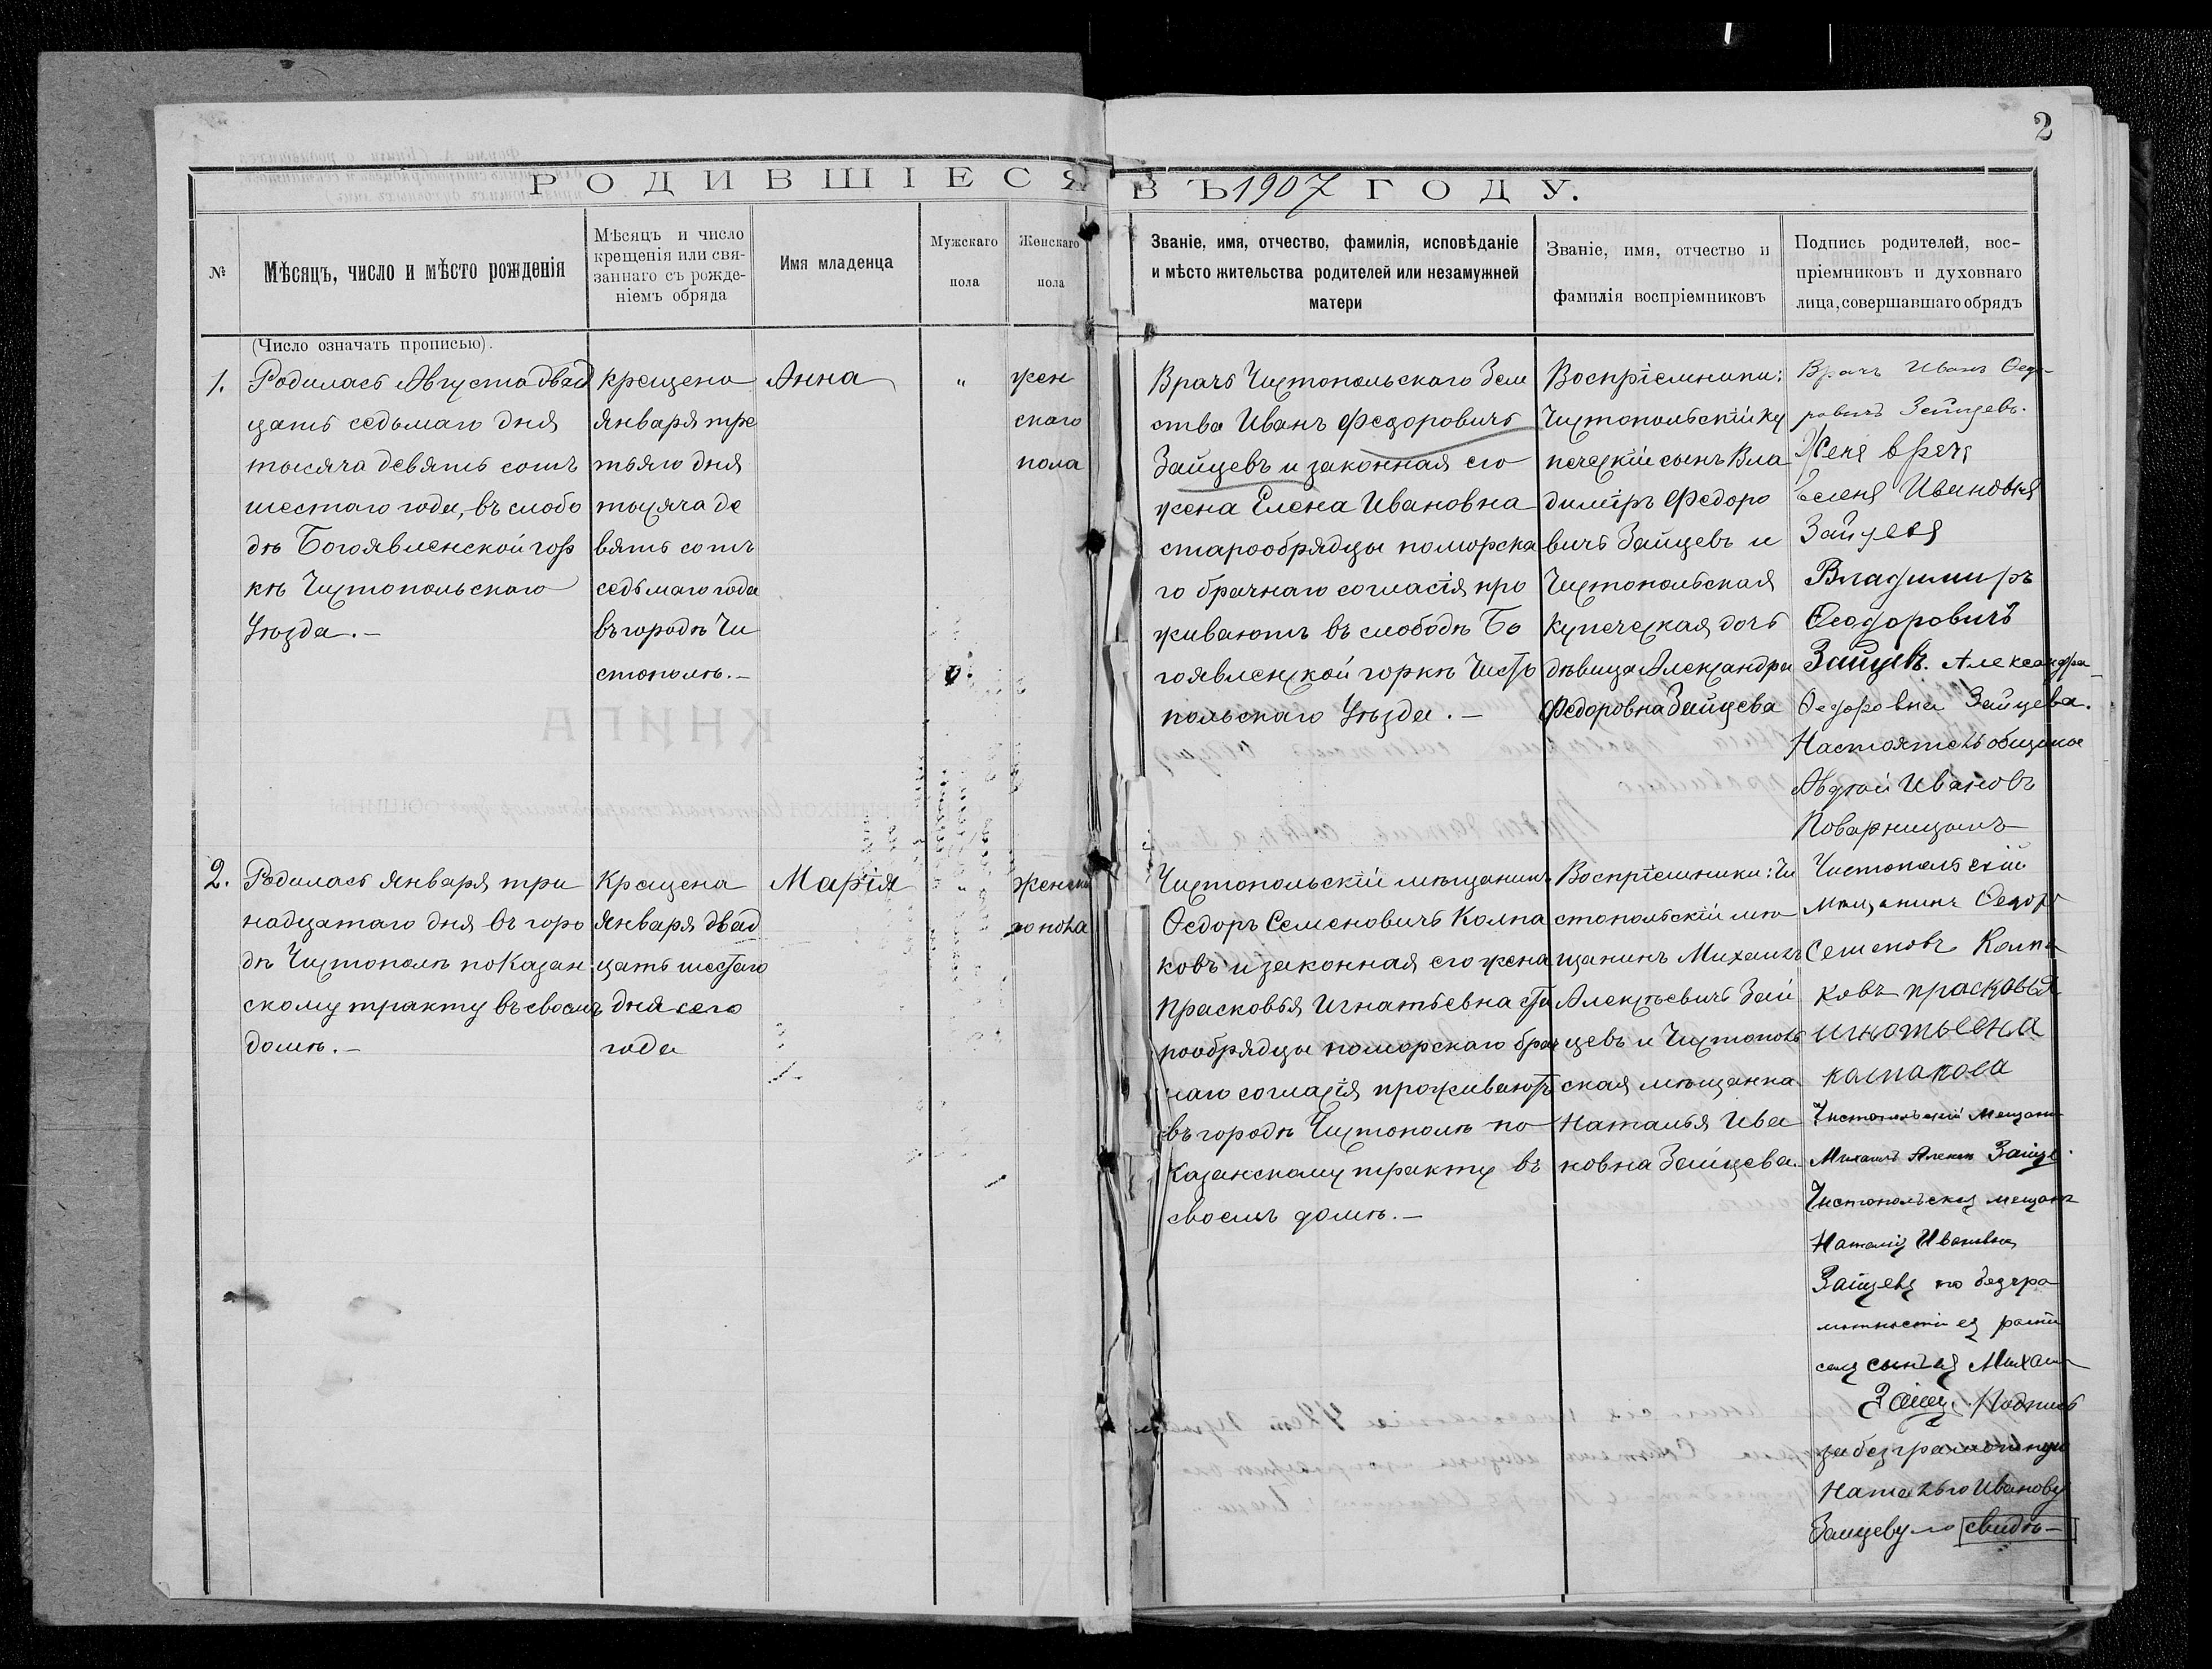 2
РОДИВШІЕСЯ ВЪ 1907 ГОДУ.
№
Мѣсяцъ, число и мѣсто рожденія
Мѣсяцъ и число
крещенія или свя-
заннаго съ рожде-
ніемъ обряда
Имя младенца
Мужскаго
пола
Женскаго
пола
Званіе, имя, отчество, фамилія, исповѣданіе
и мѣсто жительства родителей или незамужней
матери
Званіе, имя, отчество и
фамилія воспріемниковъ
Подпись родителей, вос-
пріемниковъ и духовнаго
лица, совершавшаго обрядъ
(Число означать прописью).
1.
Родилась Августа двад
цать седьмаго дня
тысяча девять сотъ
шестаго года, въ слобо
дѣ Богоявленской гор
кѣ Чистопольскаго
Уѣзда.—
Крещена
Января тре
тьяго дня
тысяча де
вять сотъ
седьмаго года
въ городѣ Чи
стополѣ.—
Анна
"
жен
скаго
пола
Врачъ Чистопольскаго Зем
ства Иванъ Федоровичъ
Зайцевъ и законная его
жена Елена Ивановна
старообрядцы поморска
го брачнаго согласія про
живаютъ въ слободѣ Бо
гоявленской горкѣ Чисто
польскаго Уѣзда.—
Воспріемники:
Чистопольскій ку
печескій сынъ Вла
димиръ Федоро
вичъ Зайцевъ и
Чистопольская
купеческая дочь
дѣвица Александра
Федоровна Зайцева
Врачъ Иванъ Ѳедо-
ровичъ Зайцевъ.
Жена врача
Елена Ивановна
Зайцева
Владимиръ
Ѳеодоровичъ
Зайцевъ. Александра
Ѳедоровна Зайцева.
Настоятель общины
Авдей Ивановъ
Поварницынъ
2.
Родилась Января три
надцатаго дня въ горо
дѣ Чистополѣ по Казан
скому тракту въ своемъ
домѣ.—
Крещена
Января двад
цать шестаго
дня сего
года
Марія
"
женска
го пола
Чистопольскій мѣщанинъ
Ѳедоръ Семеновичъ Колпа
ковъ и законная его жена
Прасковья Игнатьевна ста
рообрядцы поморскаго брач
наго согласія проживаютъ
въ городѣ Чистополѣ по
Казанскому тракту въ
своемъ домѣ.—
Воспріемники: Чи
стопольскій мѣ
щанинъ Михаилъ
Алексѣевичъ Зай
цевъ и Чистополь
ская мѣщанка
Наталья Ива
новна Зайцева.
Чистопольскій
Мещанинъ Ѳедоръ
Семеновъ Колпа
ковъ прасковья
игнатьевна
калпакова
Чистопольскій Мещани
Михаилъ Алексе Зайце
Чистопольская мещанк
Наталія Ивановна
Зайцева по безгра
мотности ея роспи
саля сынъ ея Михаил
Зайц. Подпись
за безграмотную
Наталью Иванову
Зайцеву свидѣ—